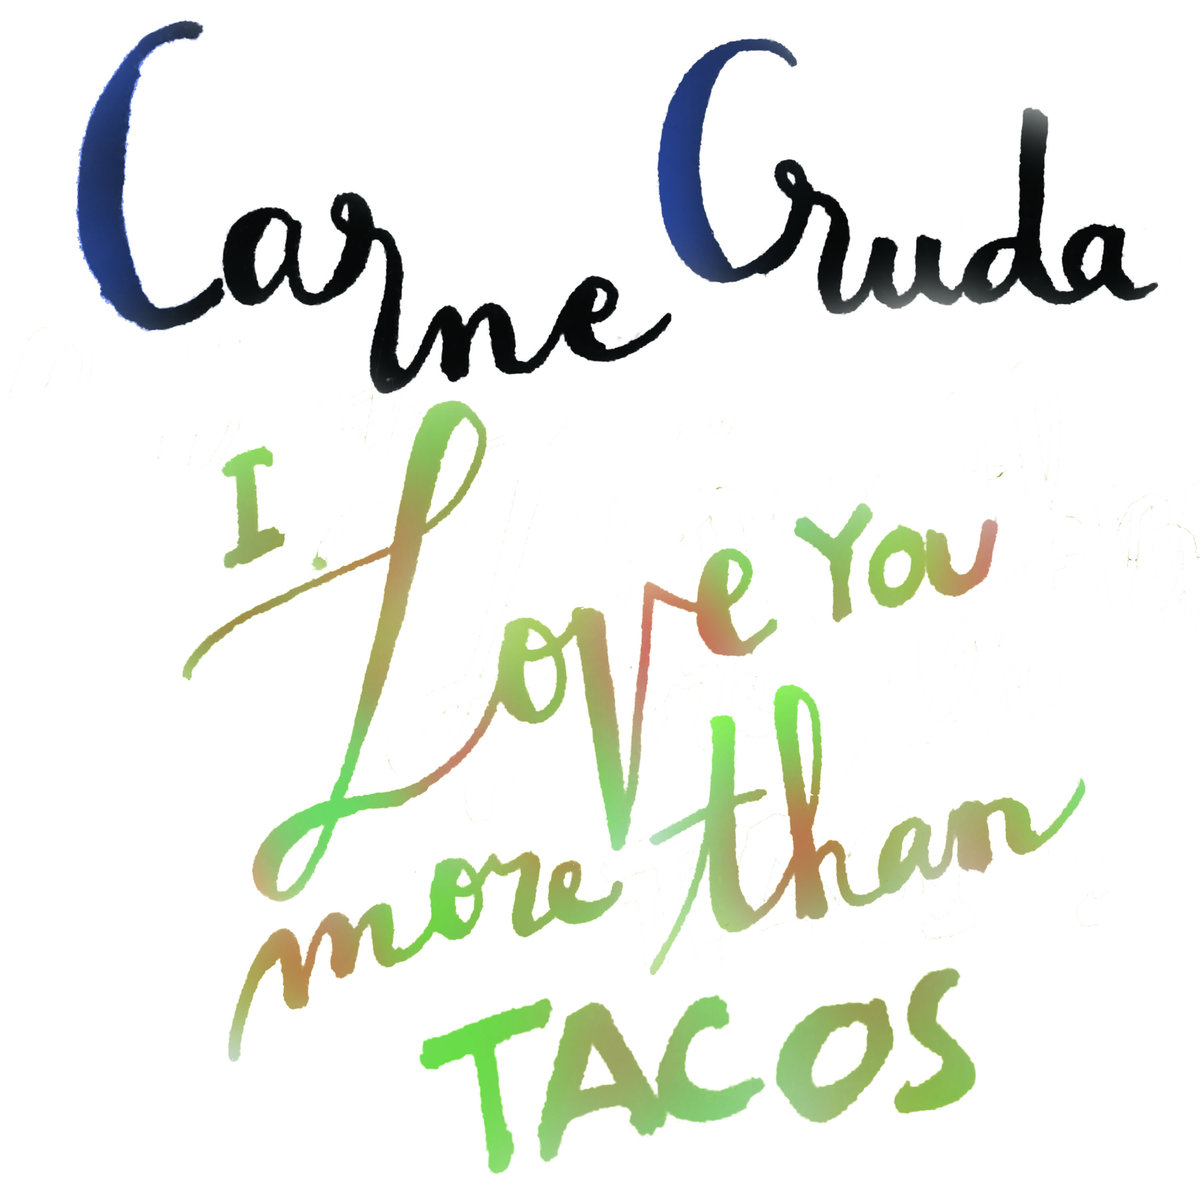 Carne Cruda
I Love YOU
more than
TACOS